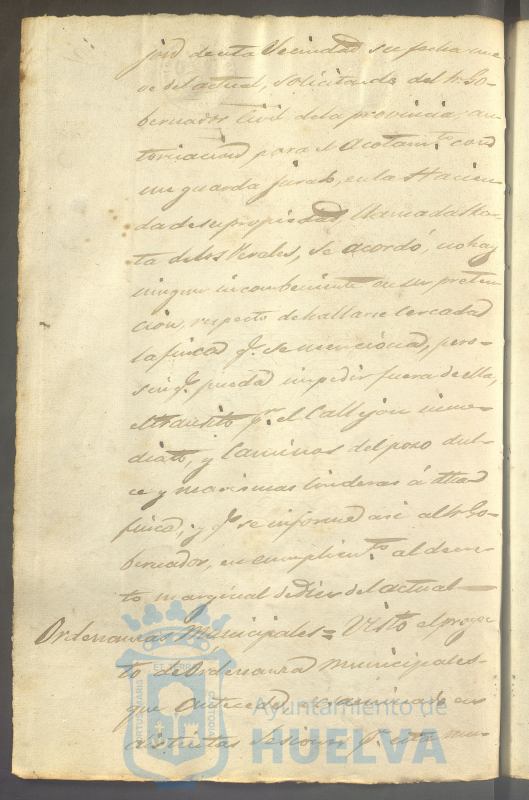 jord de esta Vecindad su fecha nue
ve del actual, solicitando del Sr. Go-
bernador Civil de la provincia, au-
torizacion para el Acotamto. con
un guarda jurado, en la Hacien-
da de su propiedad, llamada
ta de los Perales, se acordó, no hay
ningun incombeniente en su preten-
cion, respecto de hallarse cercada
la finca qe. se menciona, pero
sin qe. pueda impedir fuera de ella,
el transito pr. el Callejon inme-
diato, y Caminos del pozo dul-
ce y marismas linderas á dha
finca; y qe. se informe asi al Sr. Go-
bernador, en cumplimto. al decre-
to marginal de Diez del actual
Ordenanzas Municipales = Visto el proyec
to de Ordenanzas municipales
que antecede, examinado en
distintas Sesiones pr. esta mu-
Ayuntamiento de
HUELVA